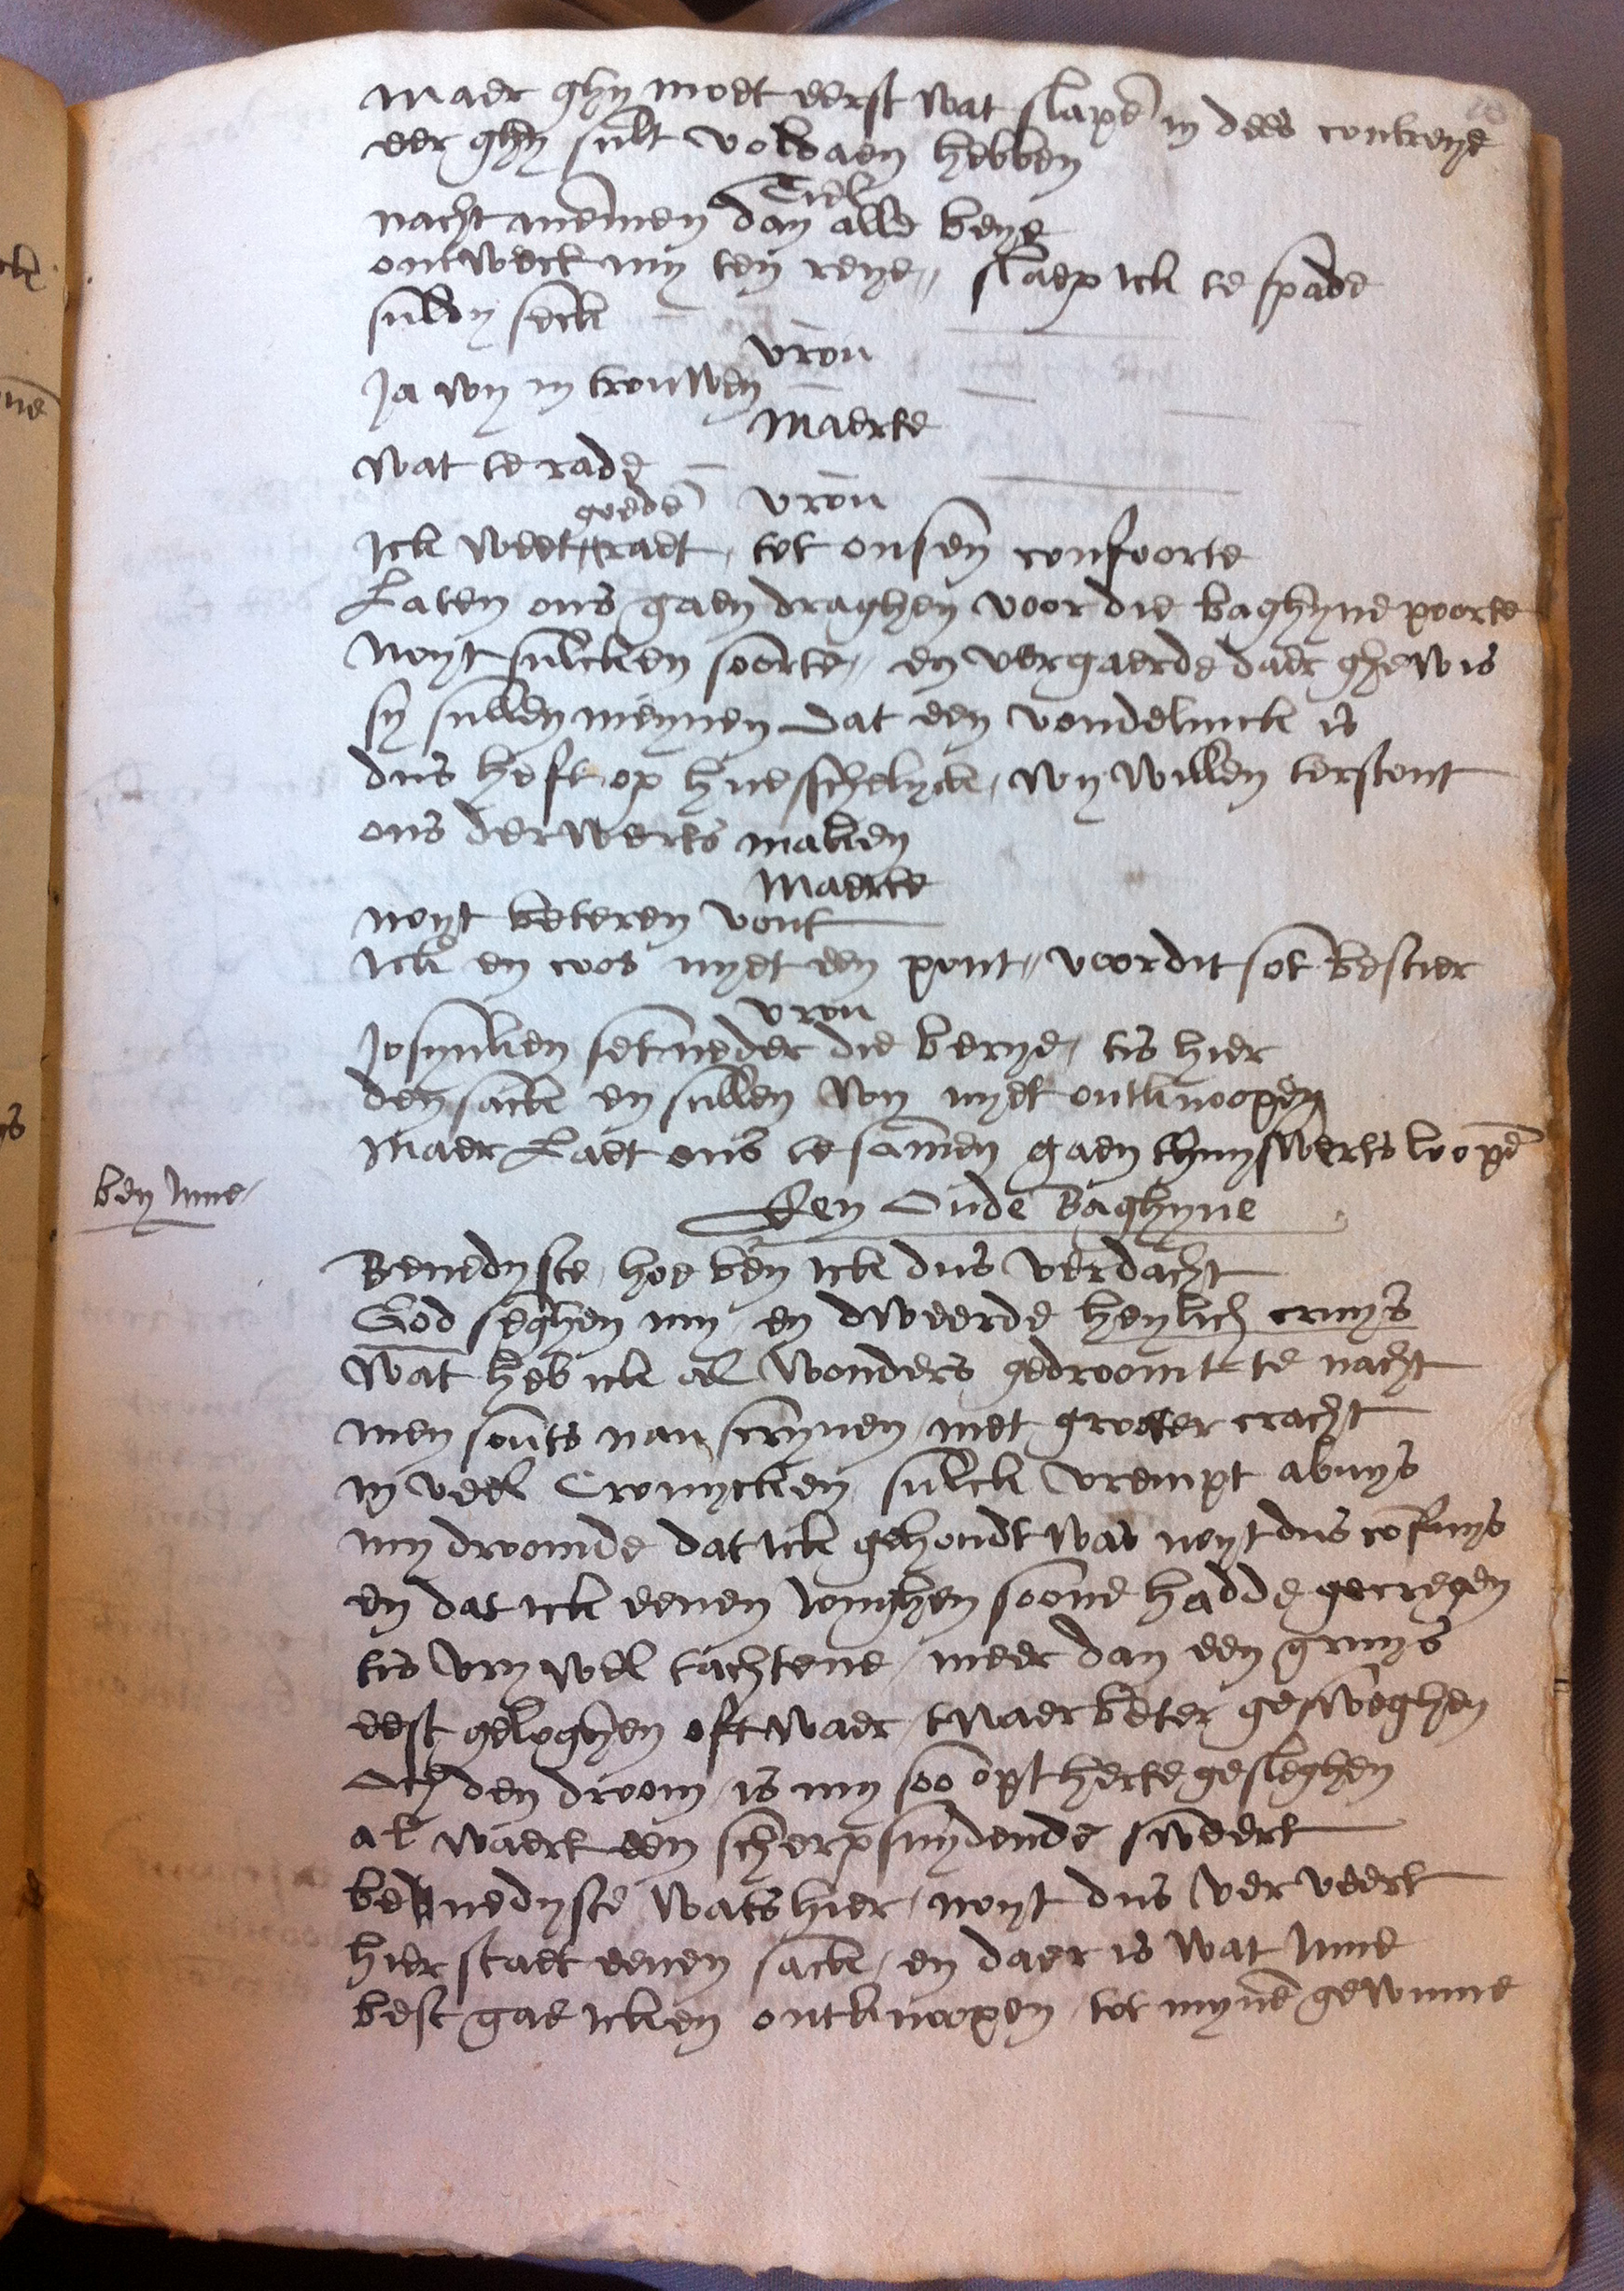 maer ghy moet eerst wat slapē in dees contreye
eer ghy sult voldaen hebben
Tiel
nacht memmen dan alle beye
ontweck my ten reye,, slaep ick te spade
suldy seck
vrou
Ja wy in trouwen
Maerte
wat te rade
vrou
Ick weet goedē raet, tot onsen confoorte
Laten ons gaen draghen voor die baghyne poorte
noyt sulcken soorte,, en vergaerde daer ghewis
sy sullen meynen dat een vondelinck is
dus heft op hueschelyck, wy willen terstont
ons derwerts maken
Maerte
noyt beteren vont
Ick en coos nyet een pont,, voor dit sot bestier
vrou
Josynken set neder die berye, tis hier
den sack en sullen wy nyet ontknoopen
maer Laet ons tesamen gaen thuyswerts loopē
ben Inne
Een Oude Baghyne
Benedyste, hoe ben ick dus verdacht
God seghen my, en dweerde heylich cruys
wat heb ick al wonders gedroomt te nacht
men souts nau scryven met grooter cracht
in veel Cronycken sulck vrempt abuys
my droomde dat ick gehoudt was noyt dus cōfuys
en dat ick eenen Jonghen soone hadde gecregen
tis vry wel tachtene, meer dan een gruys
eest geloghen oft waer, twaer beter gesweghen
Och den droom, is my soo opt herte gesleghen
al waert een scherpsnydende sweert
benedyste wats hier, noyt dus verveert
hier staet eenen sack, en daer is wat Inne
best gae icken ontknoopen, tot mynē gewinne